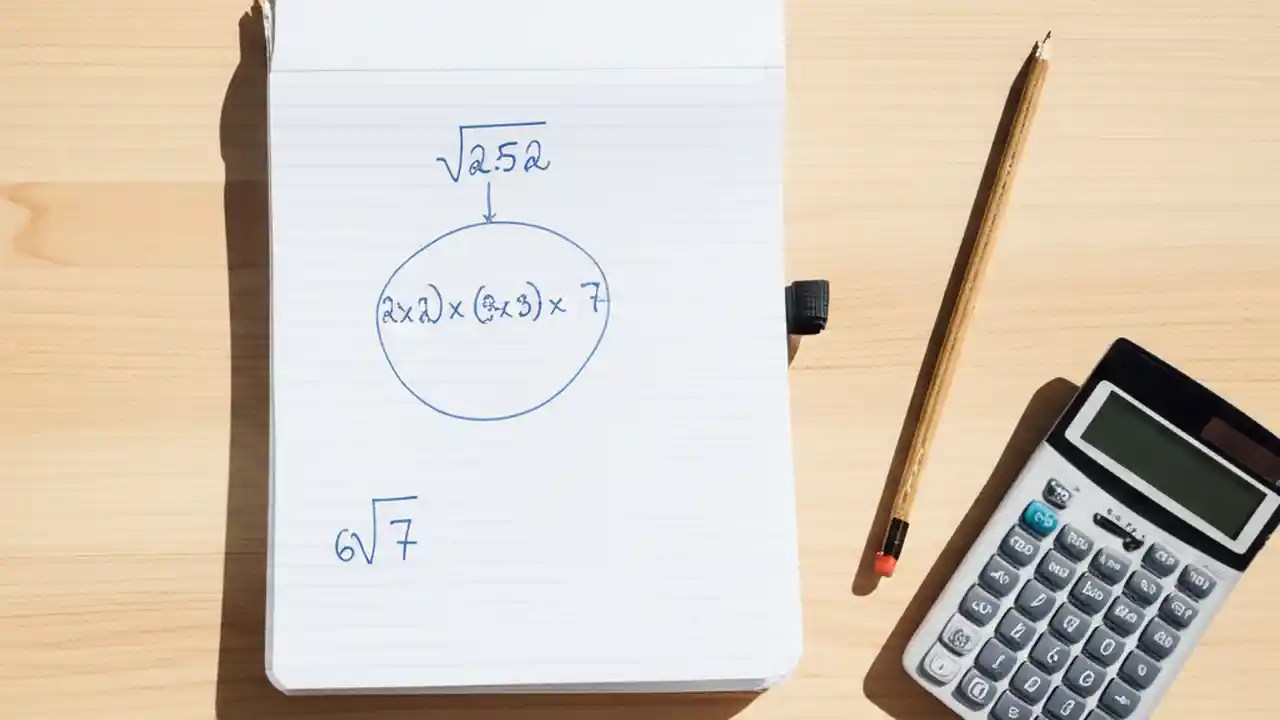 √2.52
2×2)×(3×3)× 7
6√7